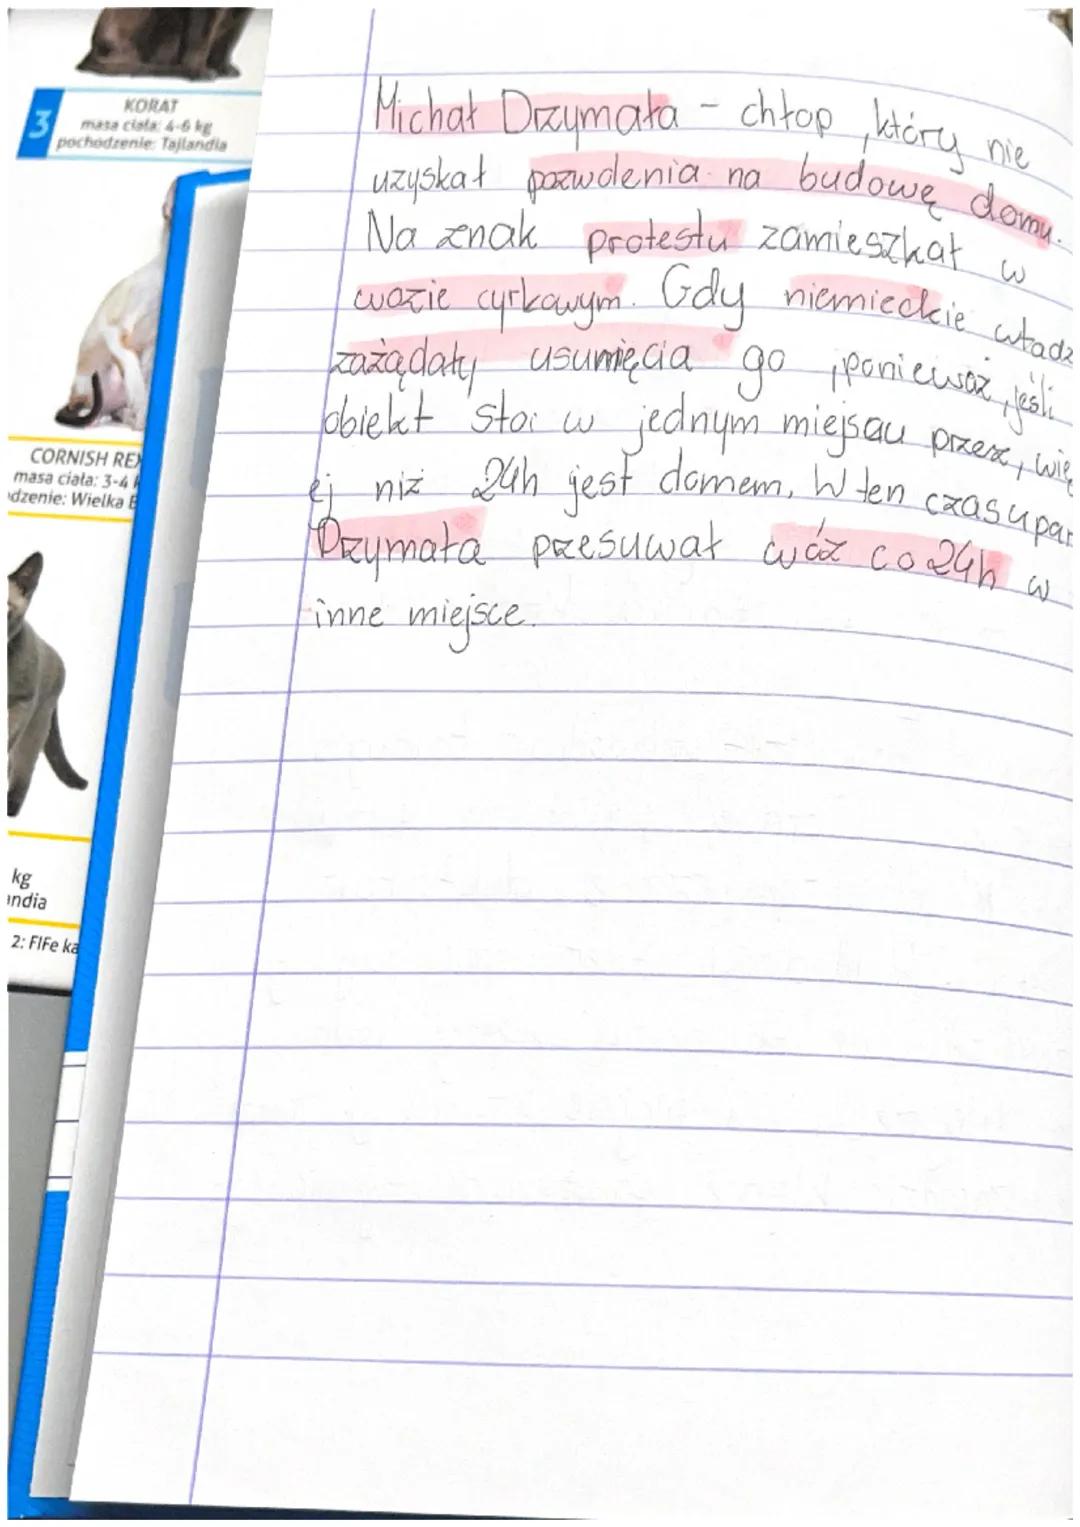 KORAT
3
masa ciała: 4-6 kg
pochodzenie: Tajlandia
CORNISH REX
masa ciała: 3-4 k
dzenie: Wielka B
kg
andia
2: FIFe ka
Michał Drzymała - chłop, który nie
uzyskał pozwolenia na budowę domu.
Na znak protestu zamieszkał w
wozie cyrkowym. Gdy niemieckie władz
zażądały usunięcia go, ponieważ, jeśli
obiekt stoi w jednym miejscu przez, wię
ej niż 24h jest domem. W ten czas upar
Drzymała przesuwał wóz co 24h w
inne miejsce.